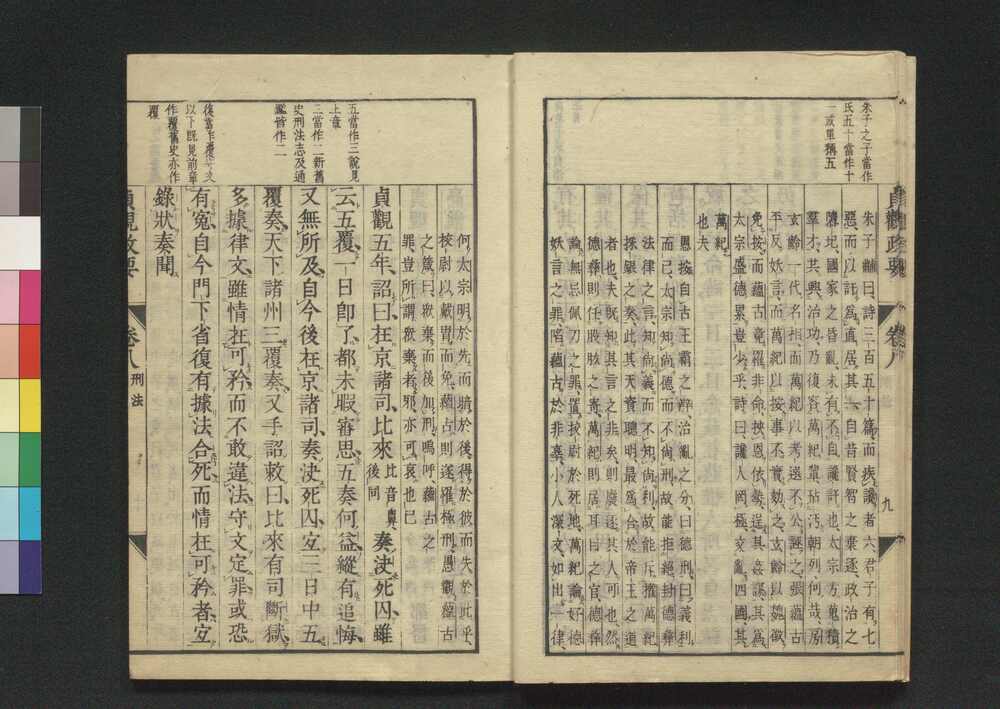 朱子之子當作
氏五十當作十
一或單稱五
朱子黼曰、詩三百五十篇、而疾讒者六、君子有七
惡、而以訐爲直居其一、自昔賢智之棄逐、政治之
隳圮、國家之昏亂、未有不自讒訐也、太宗方蒐積
羣才、共興治功、乃復資萬紀輩、玷汚朝列、何哉、房
玄齡一代名相、而萬紀以考選不公誣之、張蘊古
平反妖言、而萬紀以按事不實劾之、玄齡以魏徵
免按、而蘊古竟罹非命、挾恩依勢、逞其姦謀、其爲
太宗盛德累、豈少乎、詩曰、讒人罔極、交亂四國、其
萬紀
也夫
愚按自古王霸之辨、治亂之分、曰德刑、曰義利、
而已、太宗知尚德、而不尚刑、故能拒絕封德彝
法律之言、知尚義而不知尚利、故能斥權萬紀
採銀之奏、此其天資聰明、最爲合於帝王之道
者也、夫既知其言之非矣、則廢逐其人可也、然
德彝則任股肱之寄、萬紀則居耳目之官、德彝
論無忌佩刀之罪、置挍尉於死地、萬紀論好德
妖言之罪、陷蘊古於非辜、小人深文、如出一律、
貞觀政要
卷八
九
五當作三說見
上章
三當作二新舊
史刑法志及通
鑑皆作二
後當作覆下文
以下既見前章
作覆舊史亦作
覆
何太宗明於先而暗於後、得於彼而失於此乎、
挍尉以戴胄而免、蘊古則遂罹極刑、愚觀蘊古
之箴、曰、欽棄、而後加刑、嗚呼、蘊古之
罪、豈所謂欽棄者邪、亦可哀也已
貞觀五年、詔曰、在京諸司、比來比音鼻、後同奏決死囚、雖
云五覆、一日卽了、都未暇審思、五奏何益、縱有追悔、
又無所及、自今後在京諸司、奏決死囚、宜三日中五
覆奏、天下諸州三覆奏、又手詔敕曰、比來有司斷獄、
多據律文、雖情在可矜、而不敢違法、守文定罪、或恐
有冤、自今門下省復有據法合死、而情在可矜者、宜
錄狀奏聞、
貞觀政要
卷八
刑法